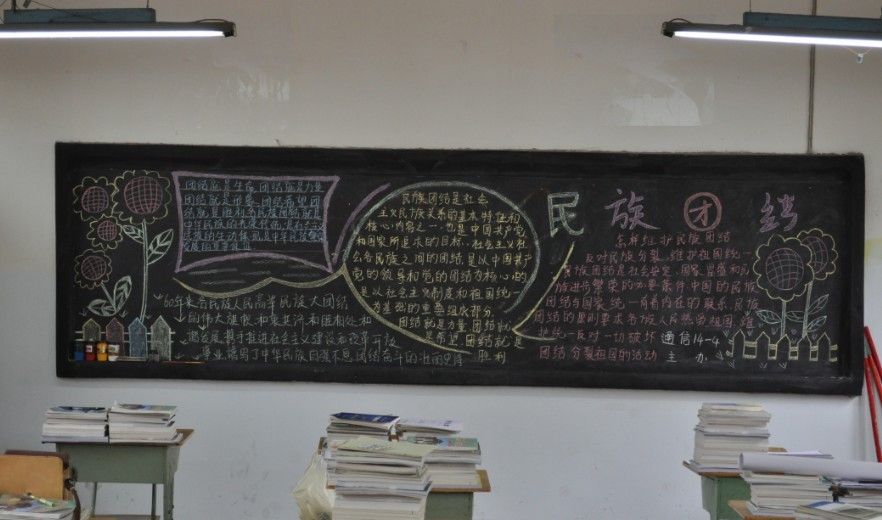 团结就是生命,团结就是力量
团结就是胜利
民族团结是社会
主义民族关系的基本特征和
核心内容之一,也是中国共产党
和国家所追求的目标,社会主义社
会各民族之间的团结是以中国共产
党的领导和党的团结为核心的,
是以社会主义制度和祖国统一
为基础的重要组成部分.
团结就是力量,团结就
是希望,团结就是
胜利
60年来各民族人民高举民族大团结
的伟大旗帜和衷共济和睦相处和
谐发展,携手推进社会主义建设和改革开放
事业,谱写了中华民族自强不息团结奋斗的壮丽史诗
民族团结
怎样维护民族团结
反对民族分裂,维护祖国统一
民族团结是社会安定,国家昌盛和民
族进步繁荣的必要条件,中国的民族
团结与国家统一有着内在的联系,民族
团结的原则要求各族人民热爱祖国,维
护统一,反对一切破坏
团结分裂祖国的活动
通信14-4
主办